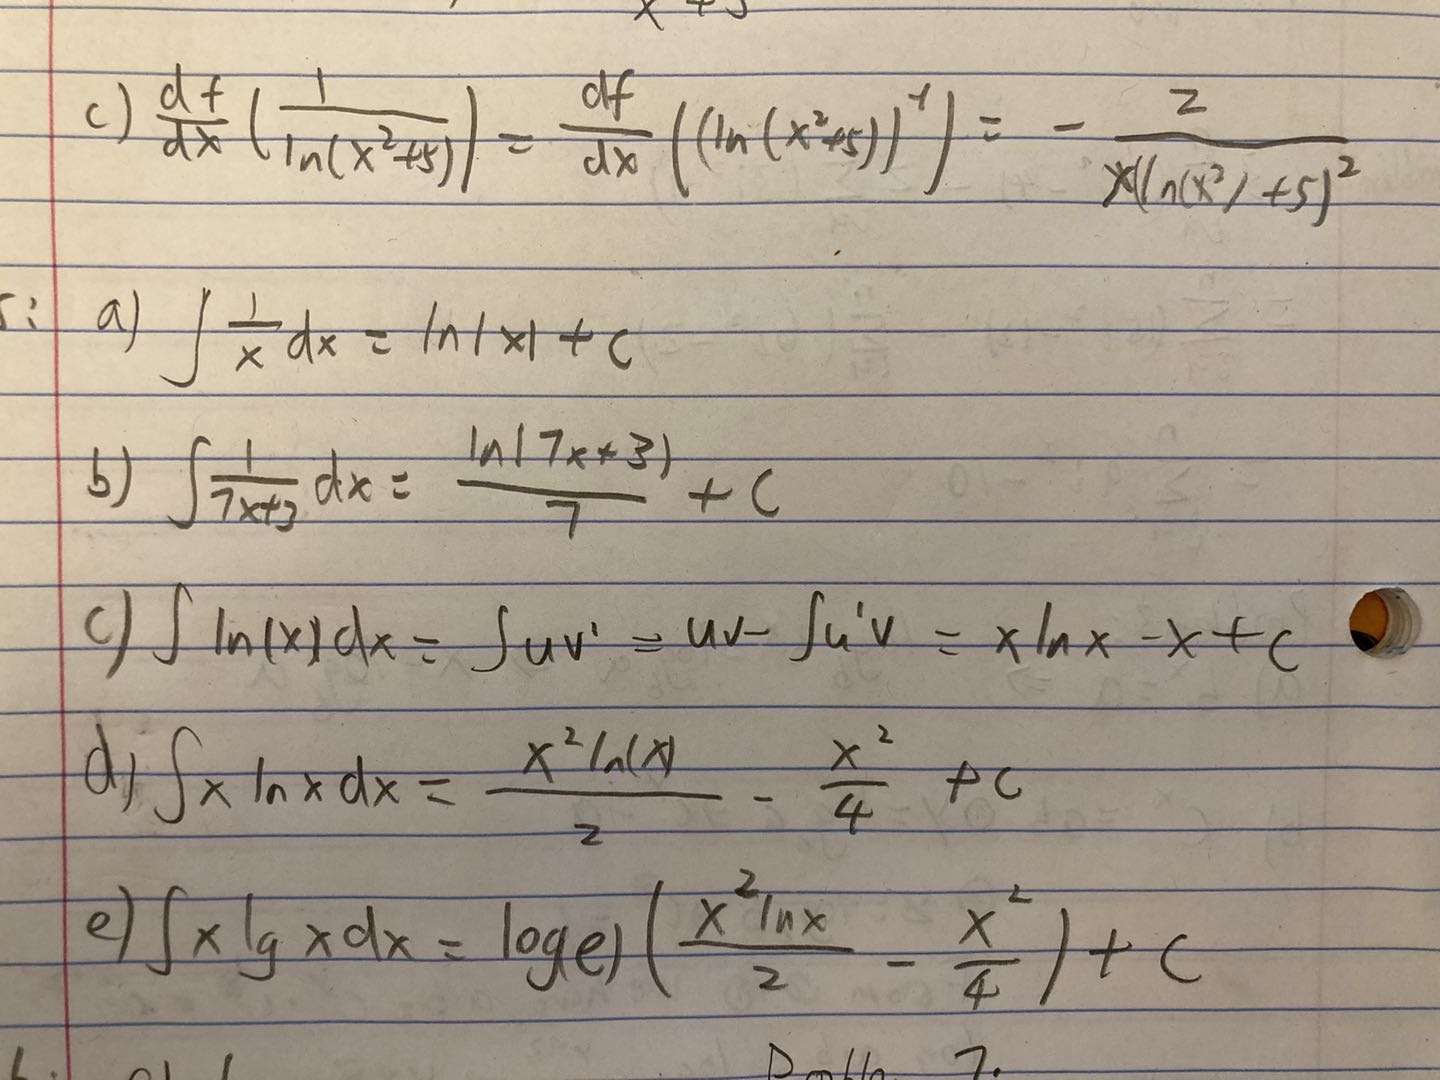 x + 5
c) df/dx (1/ln(x²+5)) = df/dx ((ln(x²+5))⁻¹) = - 2/x(ln(x²)+5)²
5: a) ∫ 1/x dx = ln|x| + c
b) ∫ 1/7x+3 dx = ln|7x+3)/7 + C
c) ∫ ln(x) dx = ∫uv' = uv - ∫u'v = x ln x - x + c
d) ∫ x ln x dx = x² ln(x)/2 - x²/4 + C
e) ∫ x lg x dx = log e) (x² ln x/2 - x²/4) + C
7.